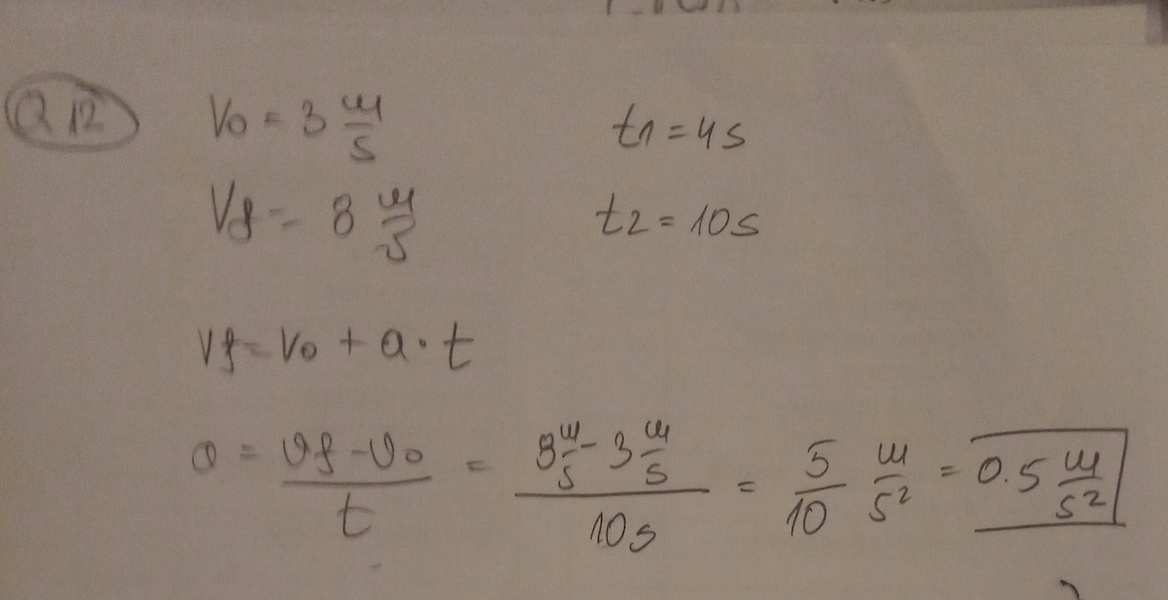 Q12
V0 = 3 m/s t1 = 4s
Vf = 8 m/s t2 = 10s
Vf = V0 + a · t
a = (vf - v0)/t = (8 m/s - 3 m/s)/10s = 5/10 m/s² = 0.5 m/s²